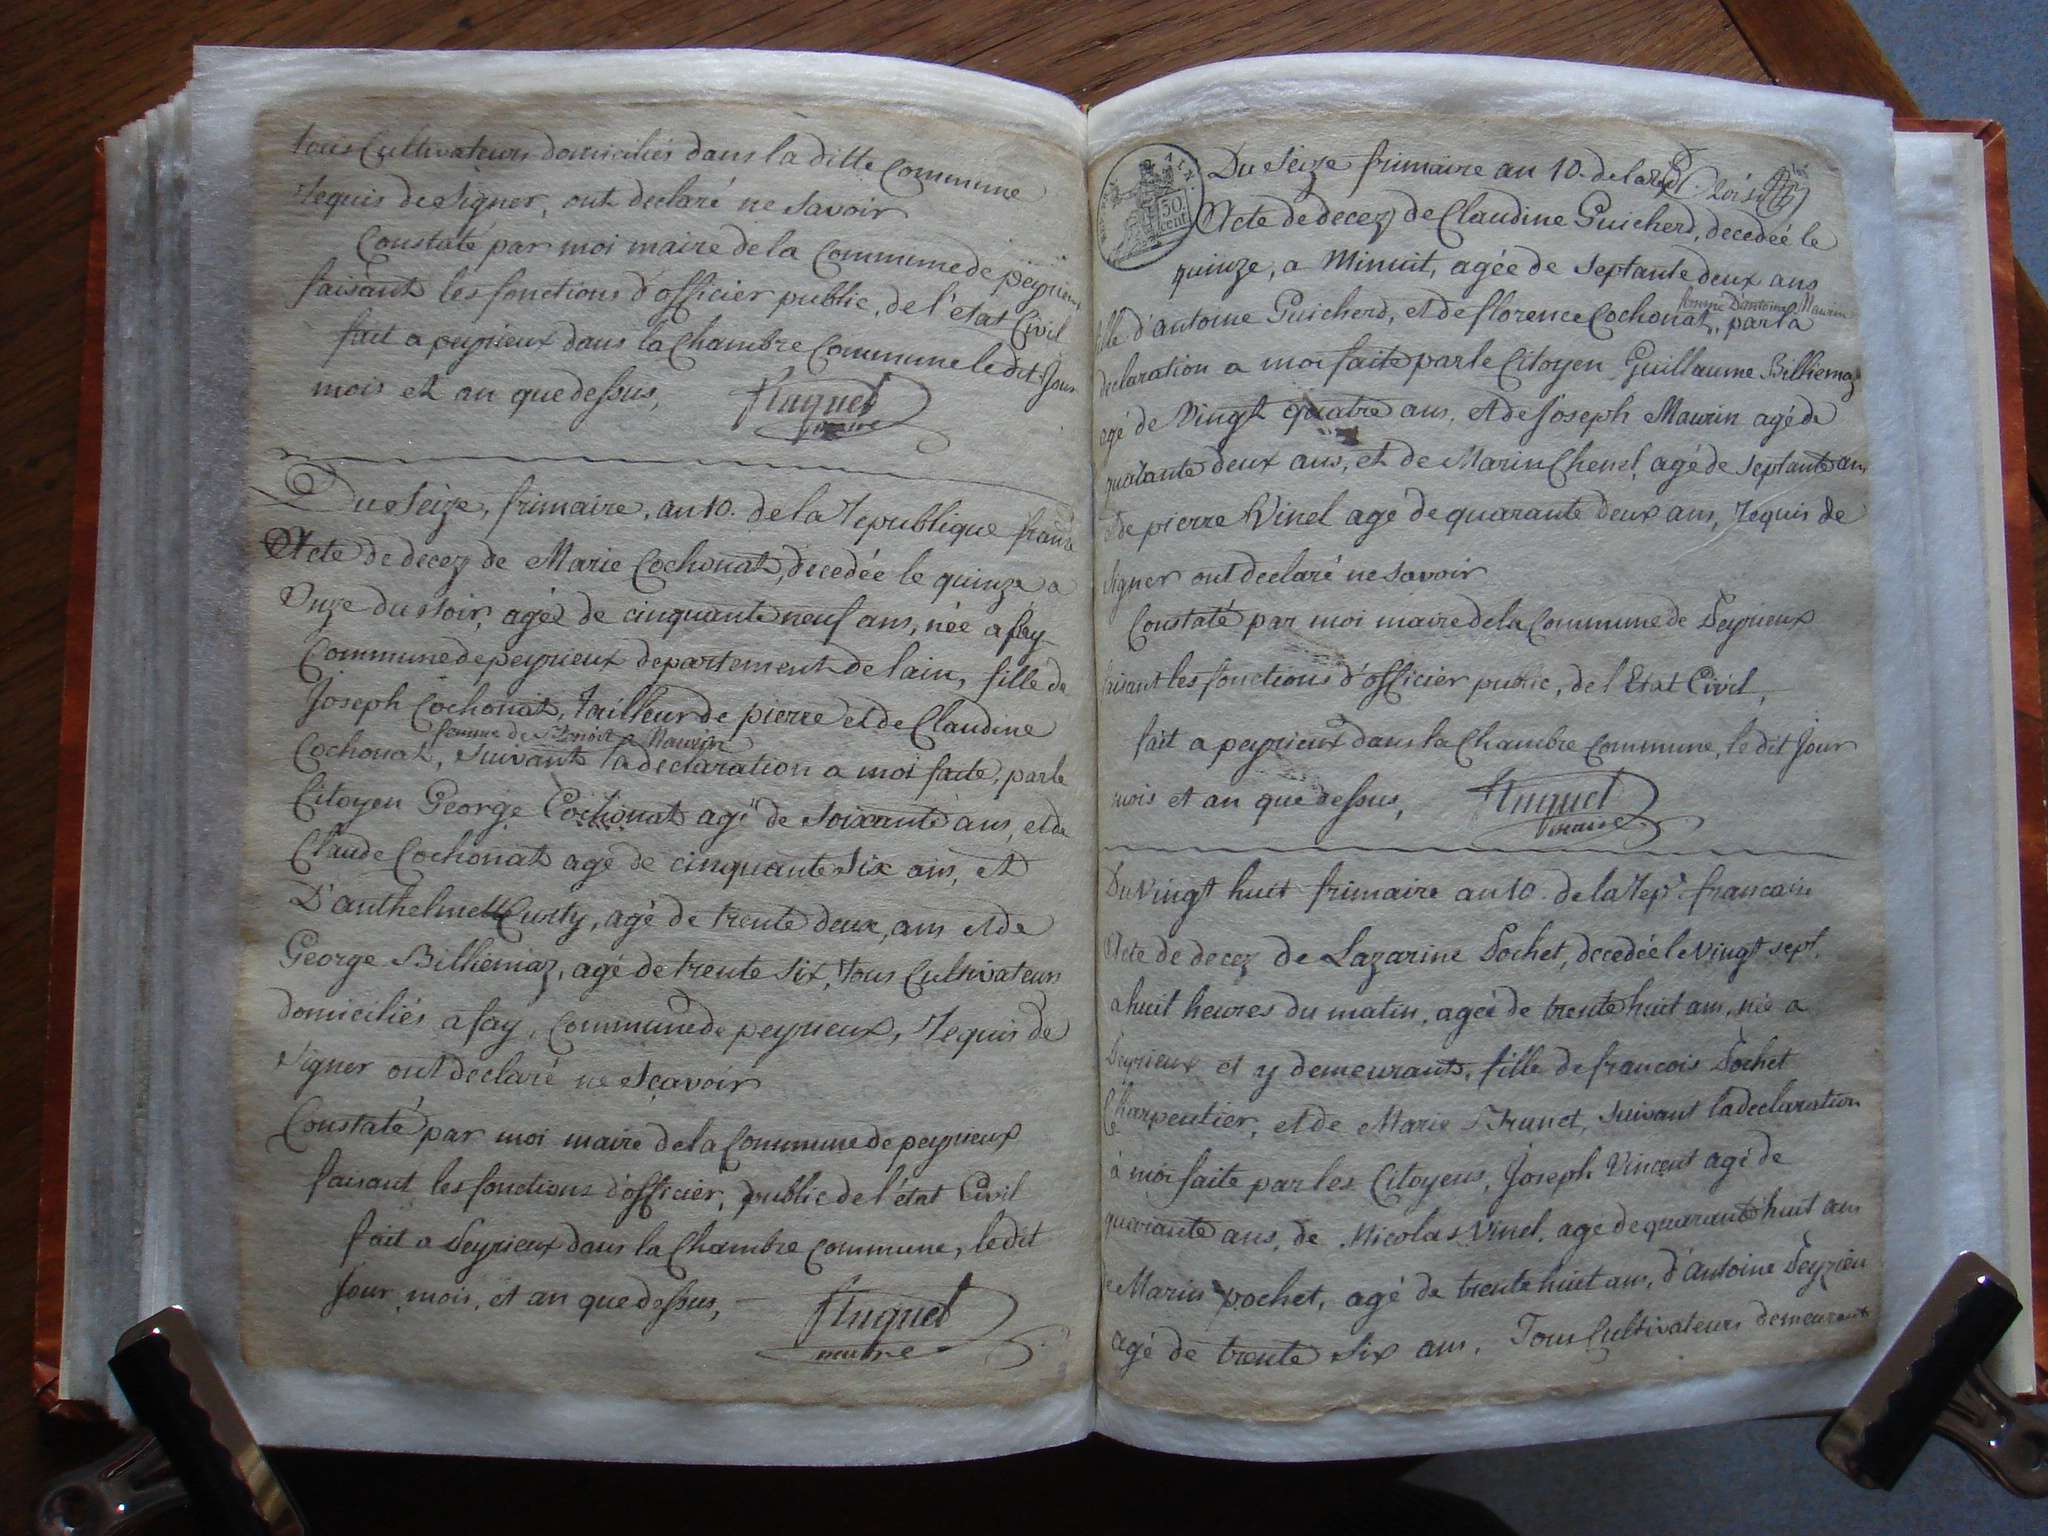 tous Cultivateurs domiciliés dans la ditte Commune
requis de signer, ont declaré ne savoir
Constaté par moi maire de la Commune de peyrieux
faisant les fonctions d'officier public, de l'état Civil
fait a peyrieux dans la Chambre Commune le dit Jour
mois et an que dessus, Huguet
maire
Du seize, frimaire, an 10. de la republique franc
Acte de decez de Marie Cochonat, decedée le quinze a
onze du soir, agée de cinquante neuf ans, née a fay
Commune de peyrieux departement de lain, fille de
Joseph Cochonat, tailleur de pierre et de Claudine
femme de Benoit Maurin
Cochonat, suivant la declaration a moi faite, par le
Citoyen George Cochonat agé de soixante ans, et de
Claude Cochonat agé de cinquante six ans, et
D'anthelme Curty, agé de trente deux, ans et de
George Billiemaz, agé de trente six, tous Cultivateurs
domiciliés a fay, Commune de peyrieux, requis de
signer ont declaré ne sçavoir
Constaté par moi maire de la Commune de peyrieux
faisant les fonctions d'officier, public de l'état Civil
fait a Peyrieux dans la Chambre commune, le dit
Jour, mois, et an que dessus, Huguet
maire
AIN.
50
cent
Du seize frimaire an 10. de la rep
Acte de decez de Claudine Guicherd, decedeé le
quinze, a Minuit, agée de septante deux ans
femme D'antoine Maurin
fille d'antoine Guicherd, et de florence Cochonat, par la
declaration a moi faite par le Citoyen Guillaume Billiemaz
agé de Vingt quatre ans, et de Joseph Maurin agé de
quarante deux ans, et de Marin Chenel, agé de septante ans
et de pierre Vinel agé de quarante deux ans, requis de
signer ont declaré ne savoir
Constaté par moi maire de la Commune de Peyrieux
faisant les fonctions d'officier public, de l'Etat Civil,
fait a peyrieux dans la Chambre commune, le dit Jour
mois et an que dessus, Huguet
maire
Du vingt huit frimaire an 10. de la rep. francaise
Acte de decez de Lazarine Pochet, decedée le Vingt sept,
a huit heures du matin, agée de trente huit ans, née a
Peyrieux et y demeurante, fille de francois Pochet
Charpentier, et de Marie Brunet, suivant la declaration
à moi faite par les Citoyens, Joseph Vincent agé de
quarante ans, de Nicolas Vinel, agé de quarante huit ans
de Marin pochet, agé de trente huit ans, d'Antoine Peyzieu
agé de trente six ans, Tous Cultivateurs demeurants